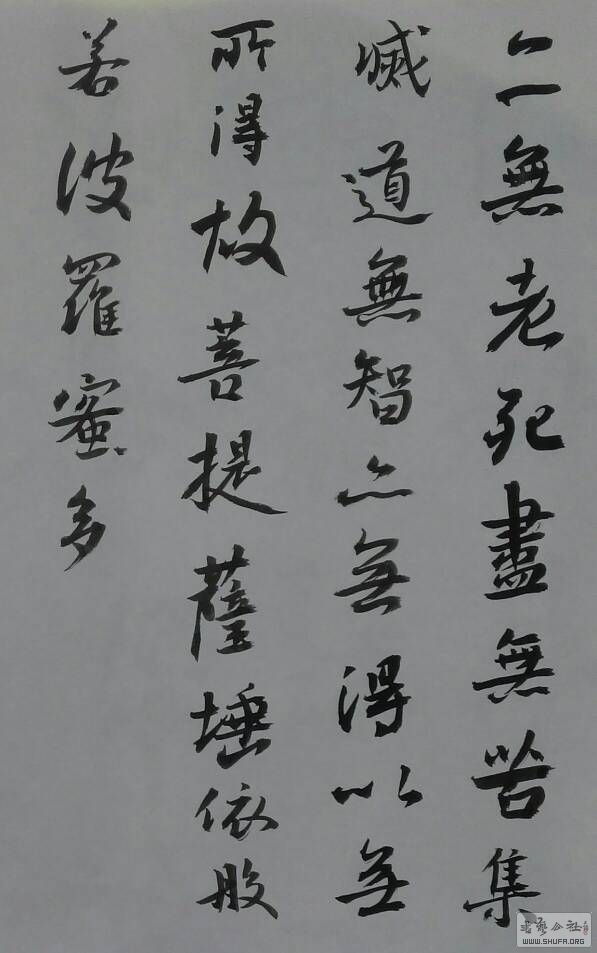 亦無老死盡無苦集
滅道無智亦無得以無
所得故菩提薩埵依般
若波羅蜜多
WWW.SHUFA.ORG